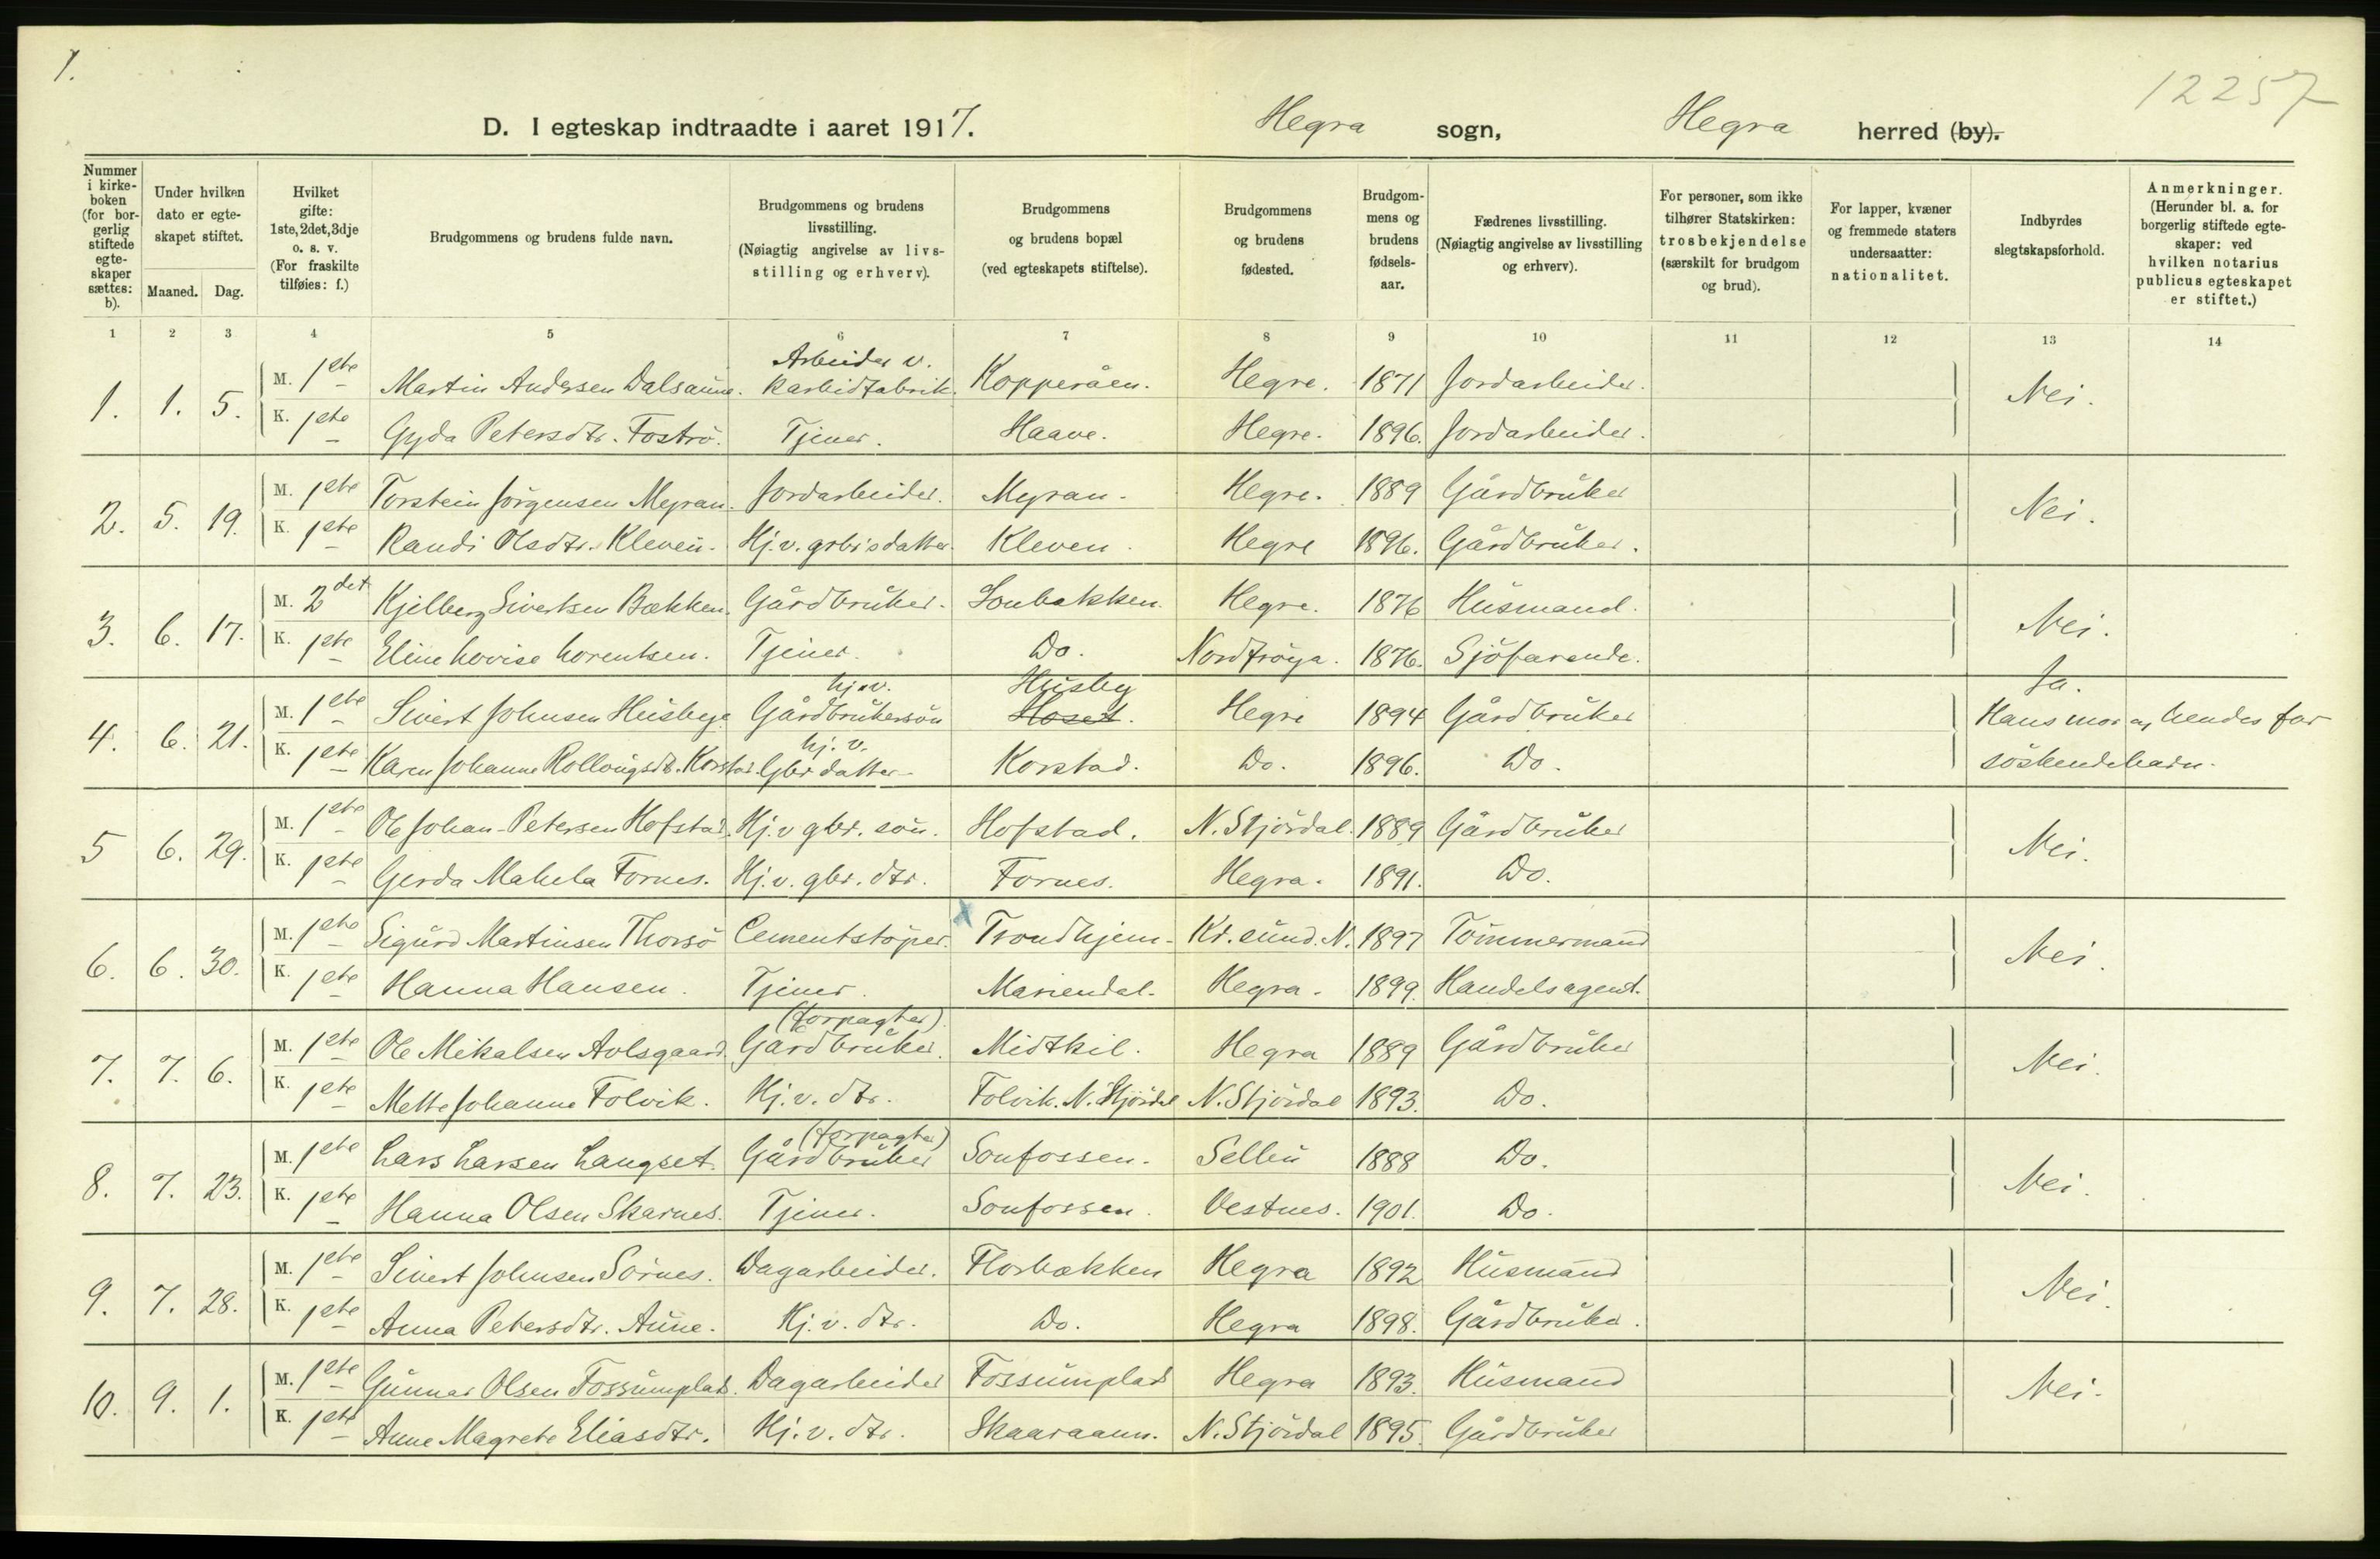 1.
12257
D. I egteskap indtraadte i aaret 1917. Hegra sogn, Hegra herred (by).
Nummer i kirkeboken (for borgerlig stiftede egteskaper sættes: b).
Under hvilken dato er egteskapet stiftet.
Maaned. Dag.
Hvilket gifte: 1ste, 2det, 3dje o. s. v. (For fraskilte tilføies: f.)
Brudgommens og brudens fulde navn.
Brudgommens og brudens livsstilling. (Nøiagtig angivelse av livsstilling og erhverv).
Brudgommens og brudens bopæl (ved egteskapets stiftelse).
Brudgommens og brudens fødested.
Brudgommens og brudens fødselsaar.
Fædrenes livsstilling. (Nøiagtig angivelse av livsstilling og erhverv).
For personer, som ikke tilhører Statskirken: trosbekjendelse (særskilt for brudgom og brud).
For lapper, kvæner og fremmede staters undersaatter: nationalitet.
Indbyrdes slegtskapsforhold.
Anmerkninger. (Herunder bl. a. for borgerlig stiftede egteskaper: ved hvilken notarius publicus egteskapet er stiftet.)
1 2 3 4 5 6 7 8 9 10 11 12 13 14
1. 1. 5. M. 1ste Martin Andersen Dalsaune. Arbeider v. Karbidfabrik. Kopperåen. Hegre. 1871 Jordarbeider. Nei.
K. 1ste Gyda Petersdtr. Fostrø. Tjener. Haave. Hegre. 1896. Jordarbeider.
2. 5. 19. M. 1ste Torstein Jörgensen Myran. Jordarbeider. Myran. Hegre. 1889 Gårdbruker Nei.
K. 1ste Randi Olsdtr. Kleven. Hj. v. grbr's datter. Kleven. Hegre 1896. Gårdbruker.
3. 6. 17. M. 2det Kjelberg Sivertsen Bækken. Gårdbruker. Sonbækken. Hegre. 1876 Husmand. Nei.
K. 1ste Eline Lovise Lorentsen. Tjener. Do. Nordfröya. 1876. Sjöfarende.
4. 6. 21. M. 1ste Sivert Johnsen Husbye hj. v. Gårdbrukersön Husby Hoset. Hegre 1894 Gårdbruker Ja. Hans mor og hendes far
K. 1ste Karen Johanne Rollougsdt. Korstad. hj. v. Gbr datter Korstad. Do. 1896. Do. söskendebarn.
5 6. 29. M. 1ste Ole Johan Petersen Hofstad. Hj. v gbr. sön. Hofstad. N. Stjördal. 1889 Gårdbruker Nei.
K. 1ste Gerda Makela Fornes. Hj. v. gbr. dtr. Fornes. Hegra. 1891. Do.
6. 6. 30. M. 1ste Sigurd Martinsen Thorsö Cementstöper. x Trondhjem. Kr. sund. N. 1897 Tömmermand Nei.
K. 1ste Hanna Hansen. Tjener. Mariendal. Hegra. 1899. Handelsagent.
7. 7. 6. M. 1ste Ole Mikalsen Avlsgaard. (forpagter). Gårdbruker. Midtkil. Hegra 1889 Gårdbruker Nei.
K. 1ste Mette Johanne Folvik. Hj. v. dtr. Folvik. N. Stjördal N. Stjördal 1893. Do.
8. 7. 23. M. 1ste Lars Larsen Langset. (forpagter) Gårdbruker Sonfossen. Selbu 1888 Do. Nei.
K. 1ste Hanna Olsen Skarnes. Tjener. Sonfossen. Vestnes. 1901. Do.
9. 7. 28. M. 1ste Sivert Johnsen Sörnes. Dagarbeider. Florbækken Hegra 1892 Husmand Nei.
K. 1ste Anna Petersdtr. Aune. Hj. v. dtr. Do. Hegra 1898. Gårdbruker.
10. 9. 1. M. 1ste Gunnar Olsen Fossumplads. Dagarbeider Fossumplads Hegra 1893. Husmand Nei.
K. 1ste Anne Magrete Eliasdtr. Hj. v. dtr. Skaaraann. N. Stjördal 1895. Gårdbruker